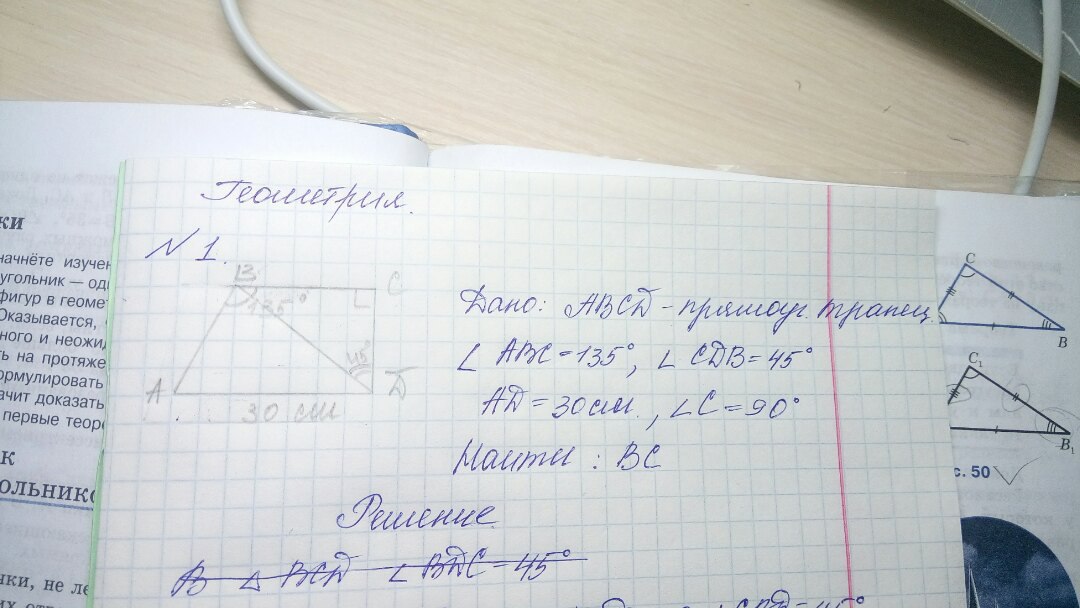 Геометрия.
N 1.
B
C
135°
45°
A
D
30 см
Дано: ABCD - прямоуг. трапец.
∠ ABC = 135°, ∠ CDB = 45°
AD = 30 см, ∠C = 90°
Найти: BC
Решение
В △ BCD ∠ BDC = 45°
= 45°
ки
начнёте
угольник —
фигур в
Оказывается,
ного и
ть на
ормулировать
ачит доказать
первые
к
ольник
чки, не
C
B
C₁
B₁
с. 50